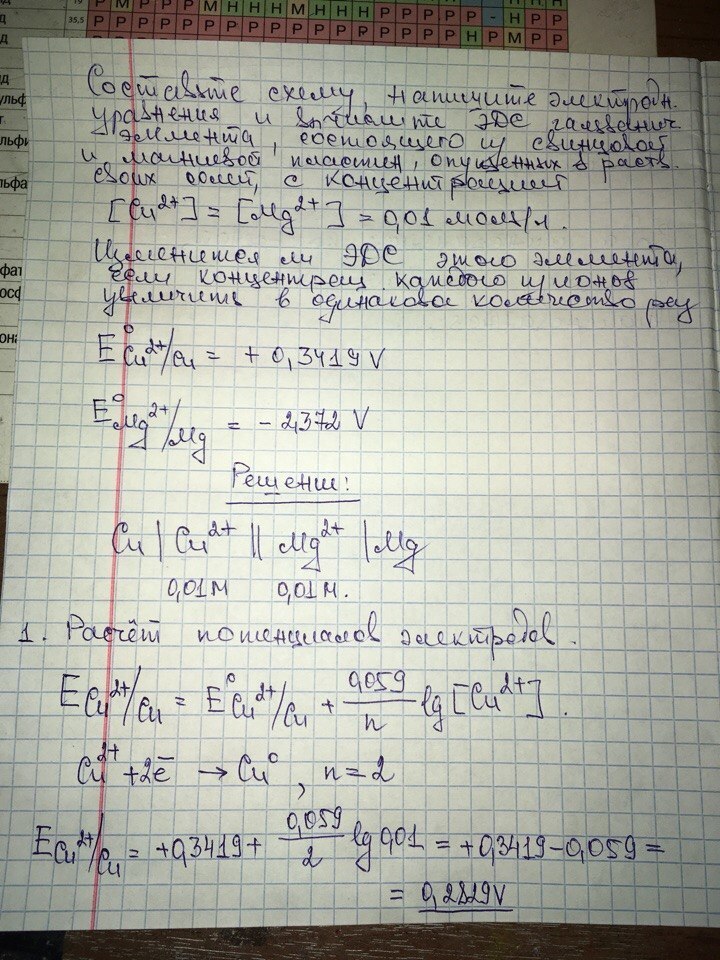 Р М Р Р М Н Н Н М Н Н Н Р Р Р Р - Н Р Р
35,5 Р Р Р Р Р Р Р Р Р Р Р Р Р Р Р Н Р М Р Р
Составьте схему, напишите электродн.
уравнения и вычислите ЭДС гальванич.
элемента, состоящего из свинцовой
и магниевой пластин, опущенных в раств.
своих солей, с концентрацией
[Cu²⁺] = [Mg²⁺] = 0,01 моль/л.
Изменится ли ЭДС этого элемента,
если концентрац. каждого из ионов
увеличить в одинаковое количество раз
E⁰Cu²⁺/Cu = + 0,3419 V
E⁰Mg²⁺/Mg = - 2,372 V
Решение:
Cu | Cu²⁺ || Mg²⁺ | Mg
0,01М 0,01М.
1. Расчёт потенциалов электродов.
ECu²⁺/Cu = E⁰Cu²⁺/Cu + 0,059/n lg [Cu²⁺].
Cu²⁺ + 2ē → Cu⁰, n = 2
ECu²⁺/Cu = +0,3419 + 0,059/2 lg 0,01 = +0,3419 - 0,059 =
= 0,2829V